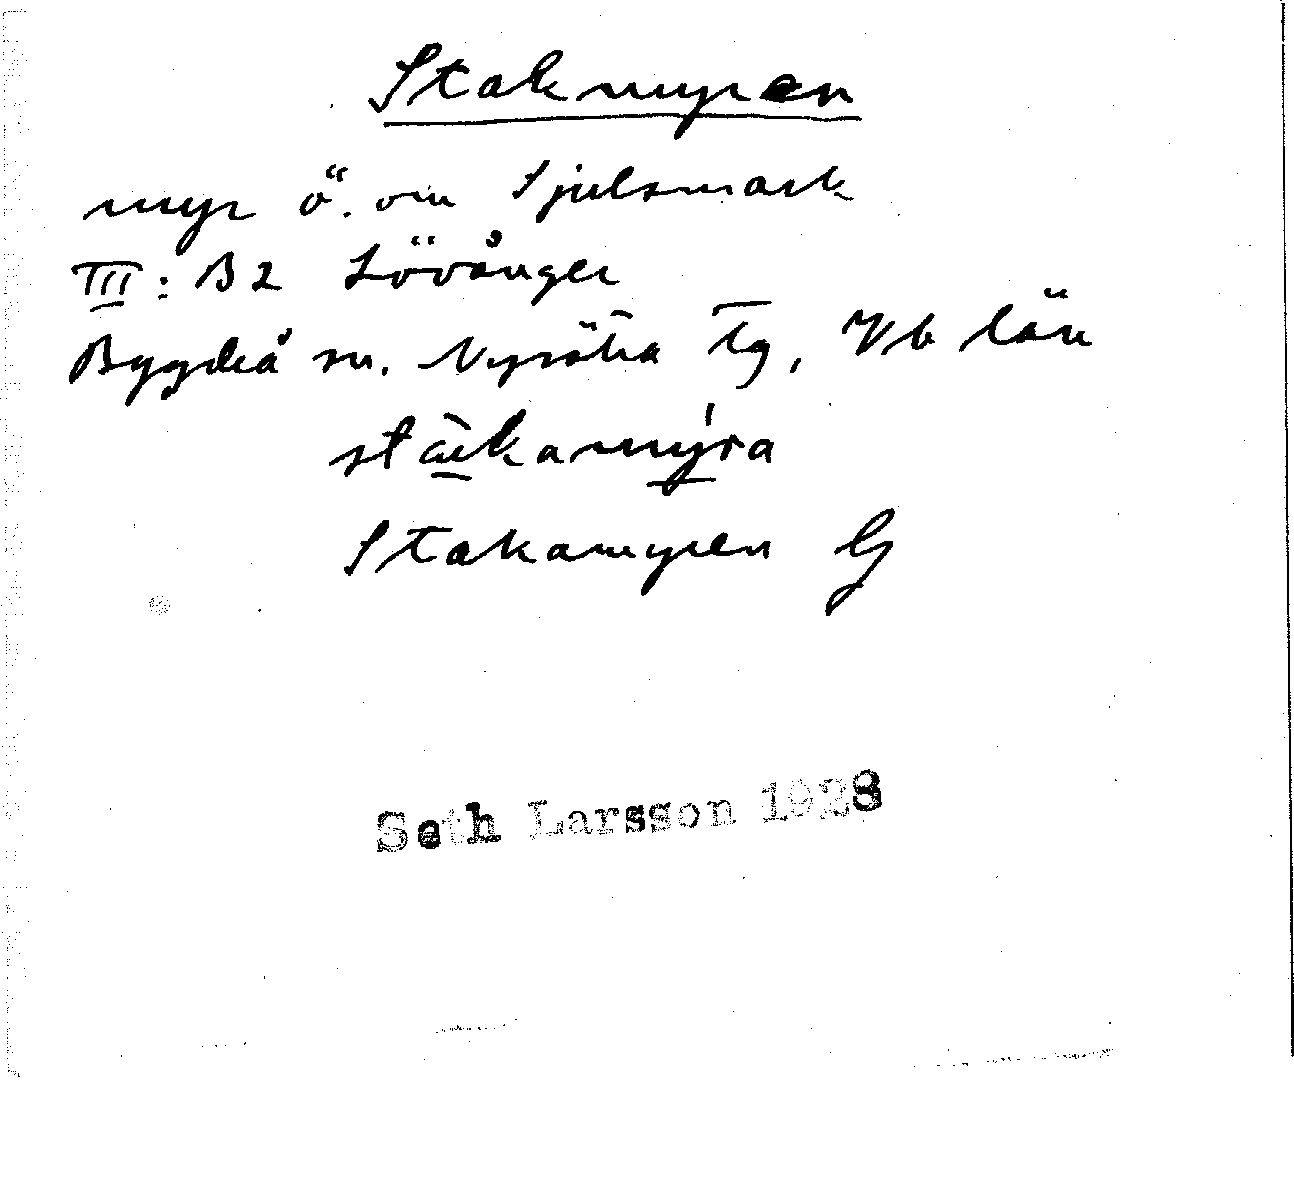 Stakmyren
myr ö. om Sjulsmark
III: B2 Lövånger
Bygdeå sn. Nysätra Tg, Vb län
stækamýra
Stakamyren G
Seth Larsson 1928